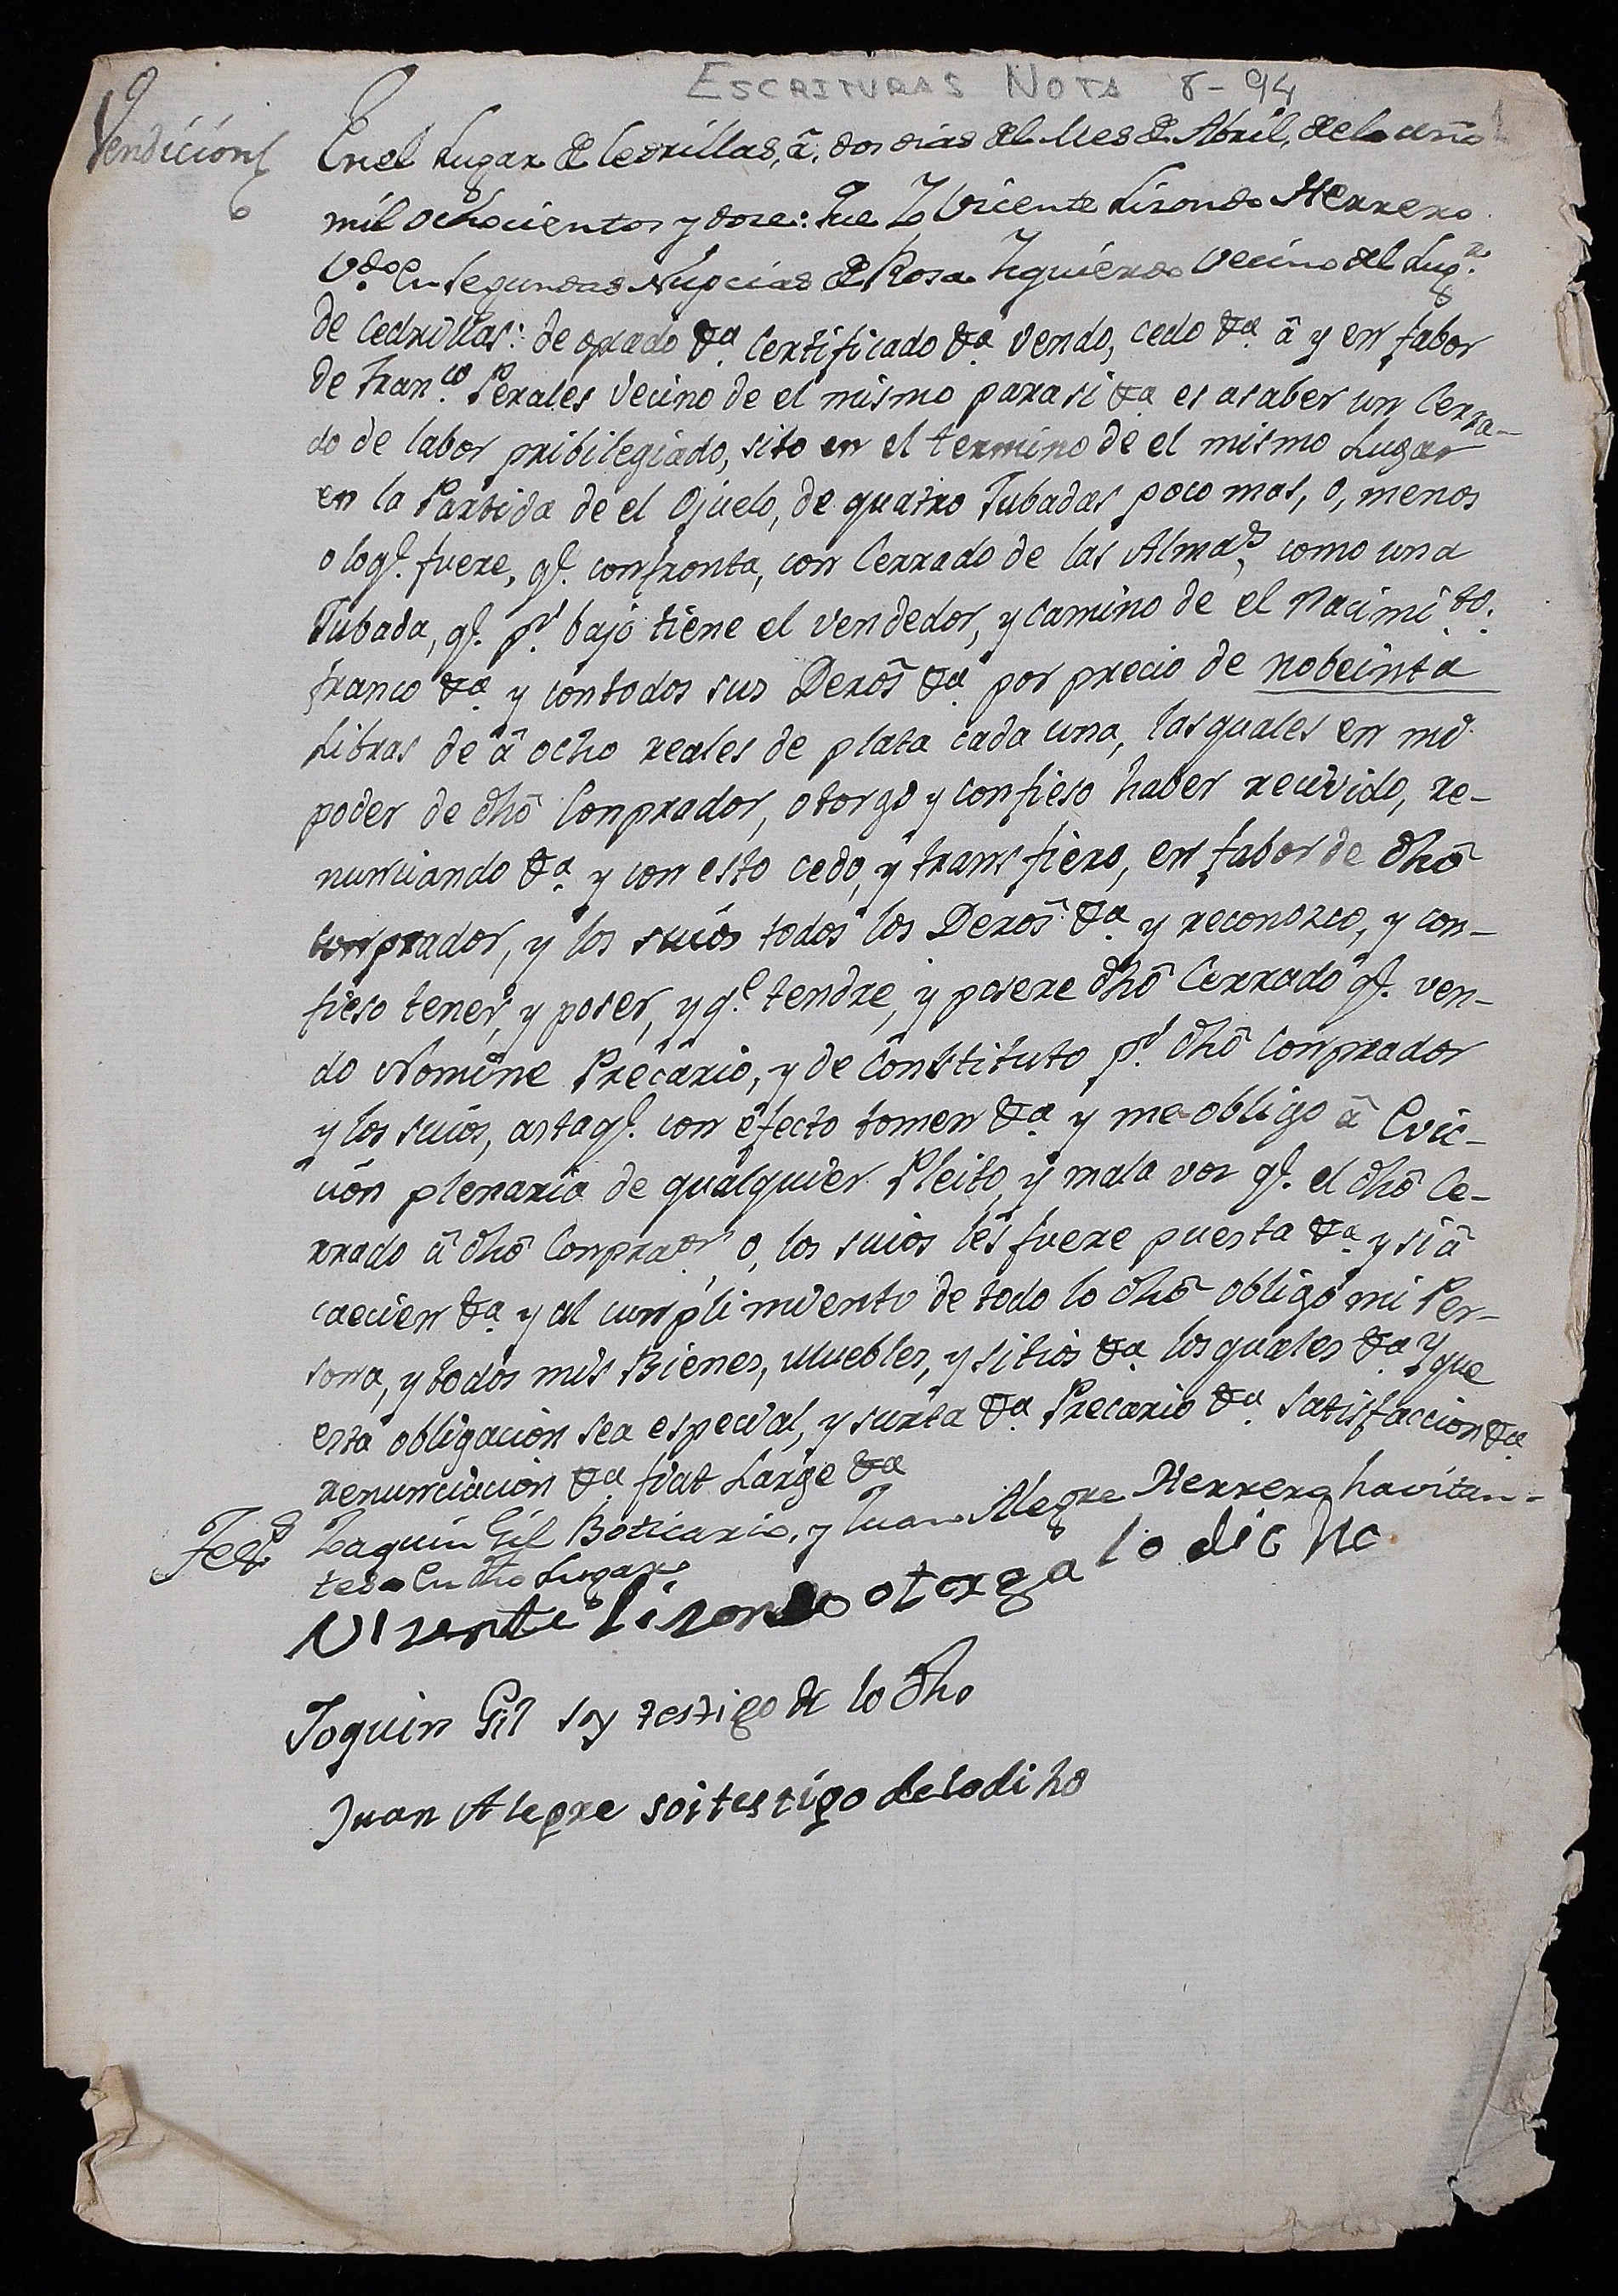 ESCRITURAS NOTA 8-94
1
Vendicion
En el Lugar de Cedrillas, â, dos dias del Mes de Abril, de el año
mil ochocientos y doze: Que Yo Vicente Lizondo Herrero
V.do en segundas Nupcias de Rosa Izquierdo Vecino del Lug.r
de Cedrillas: de grado &a. Certificado &a. Vendo, cedo &a. â y en fabor
de Fran.co Perales Vecino de el mismo para si &a. es asaber un Cerra-
do de labor pribilegiado, sito en el termino de el mismo Lugar
en la Partida de el Ojuelo, de quatro Jubadas poco mas, o, menos
o loq.e fuere, q.e confronta, con Cerrado de las Almas, como una
Jubada, q.e p.r bajo tiene el vendedor, y camino de el Nacimi.to.
franco &a. y contodos sus Deros &a. por precio de nobeinta
Libras de â ocho reales de plata cada una, lasquales en mi
poder de dhô Conprador, otorgo y confieso haber recivido, re-
nunciando &a. y con esto cedo, y transfiero, en fabor de dhô
conprador, y los suios todos los Deros &a. y reconozco, y con-
fieso tener, y poser, y q.e tendre, y posere dhô Cerrado q.e ven-
do Nomine Precario, y de Constituto p.r dhô Conprador
y los suios, astaq.e con efecto tomen &a. y me obligo â Evic-
cion plenaria de qualquier Pleito, y mala voz q.e el dhô Ce-
rrado â dhô Conpraor o, los suios les fuere puesta &a. y si â
caecien &a. y al cunplimiento de todo lo dhô obligo mi Per-
sona, y todos mis Bienes, Muebles, y sitios &a. losquales &a. y que
esta obligacion sea especial, y surta &a. Precario &a. Satisfaccion &a
renunciacion &a. fiat Large &a
Test.s Joaquin Gil Boticario, y Juan Alegre Herrero havitan-
tes en dho Lugar
Vizente Lizondo otorga lo dicho
Joquin Gil soy testigo de lo dho
Juan Alegre soi testigo delodiho